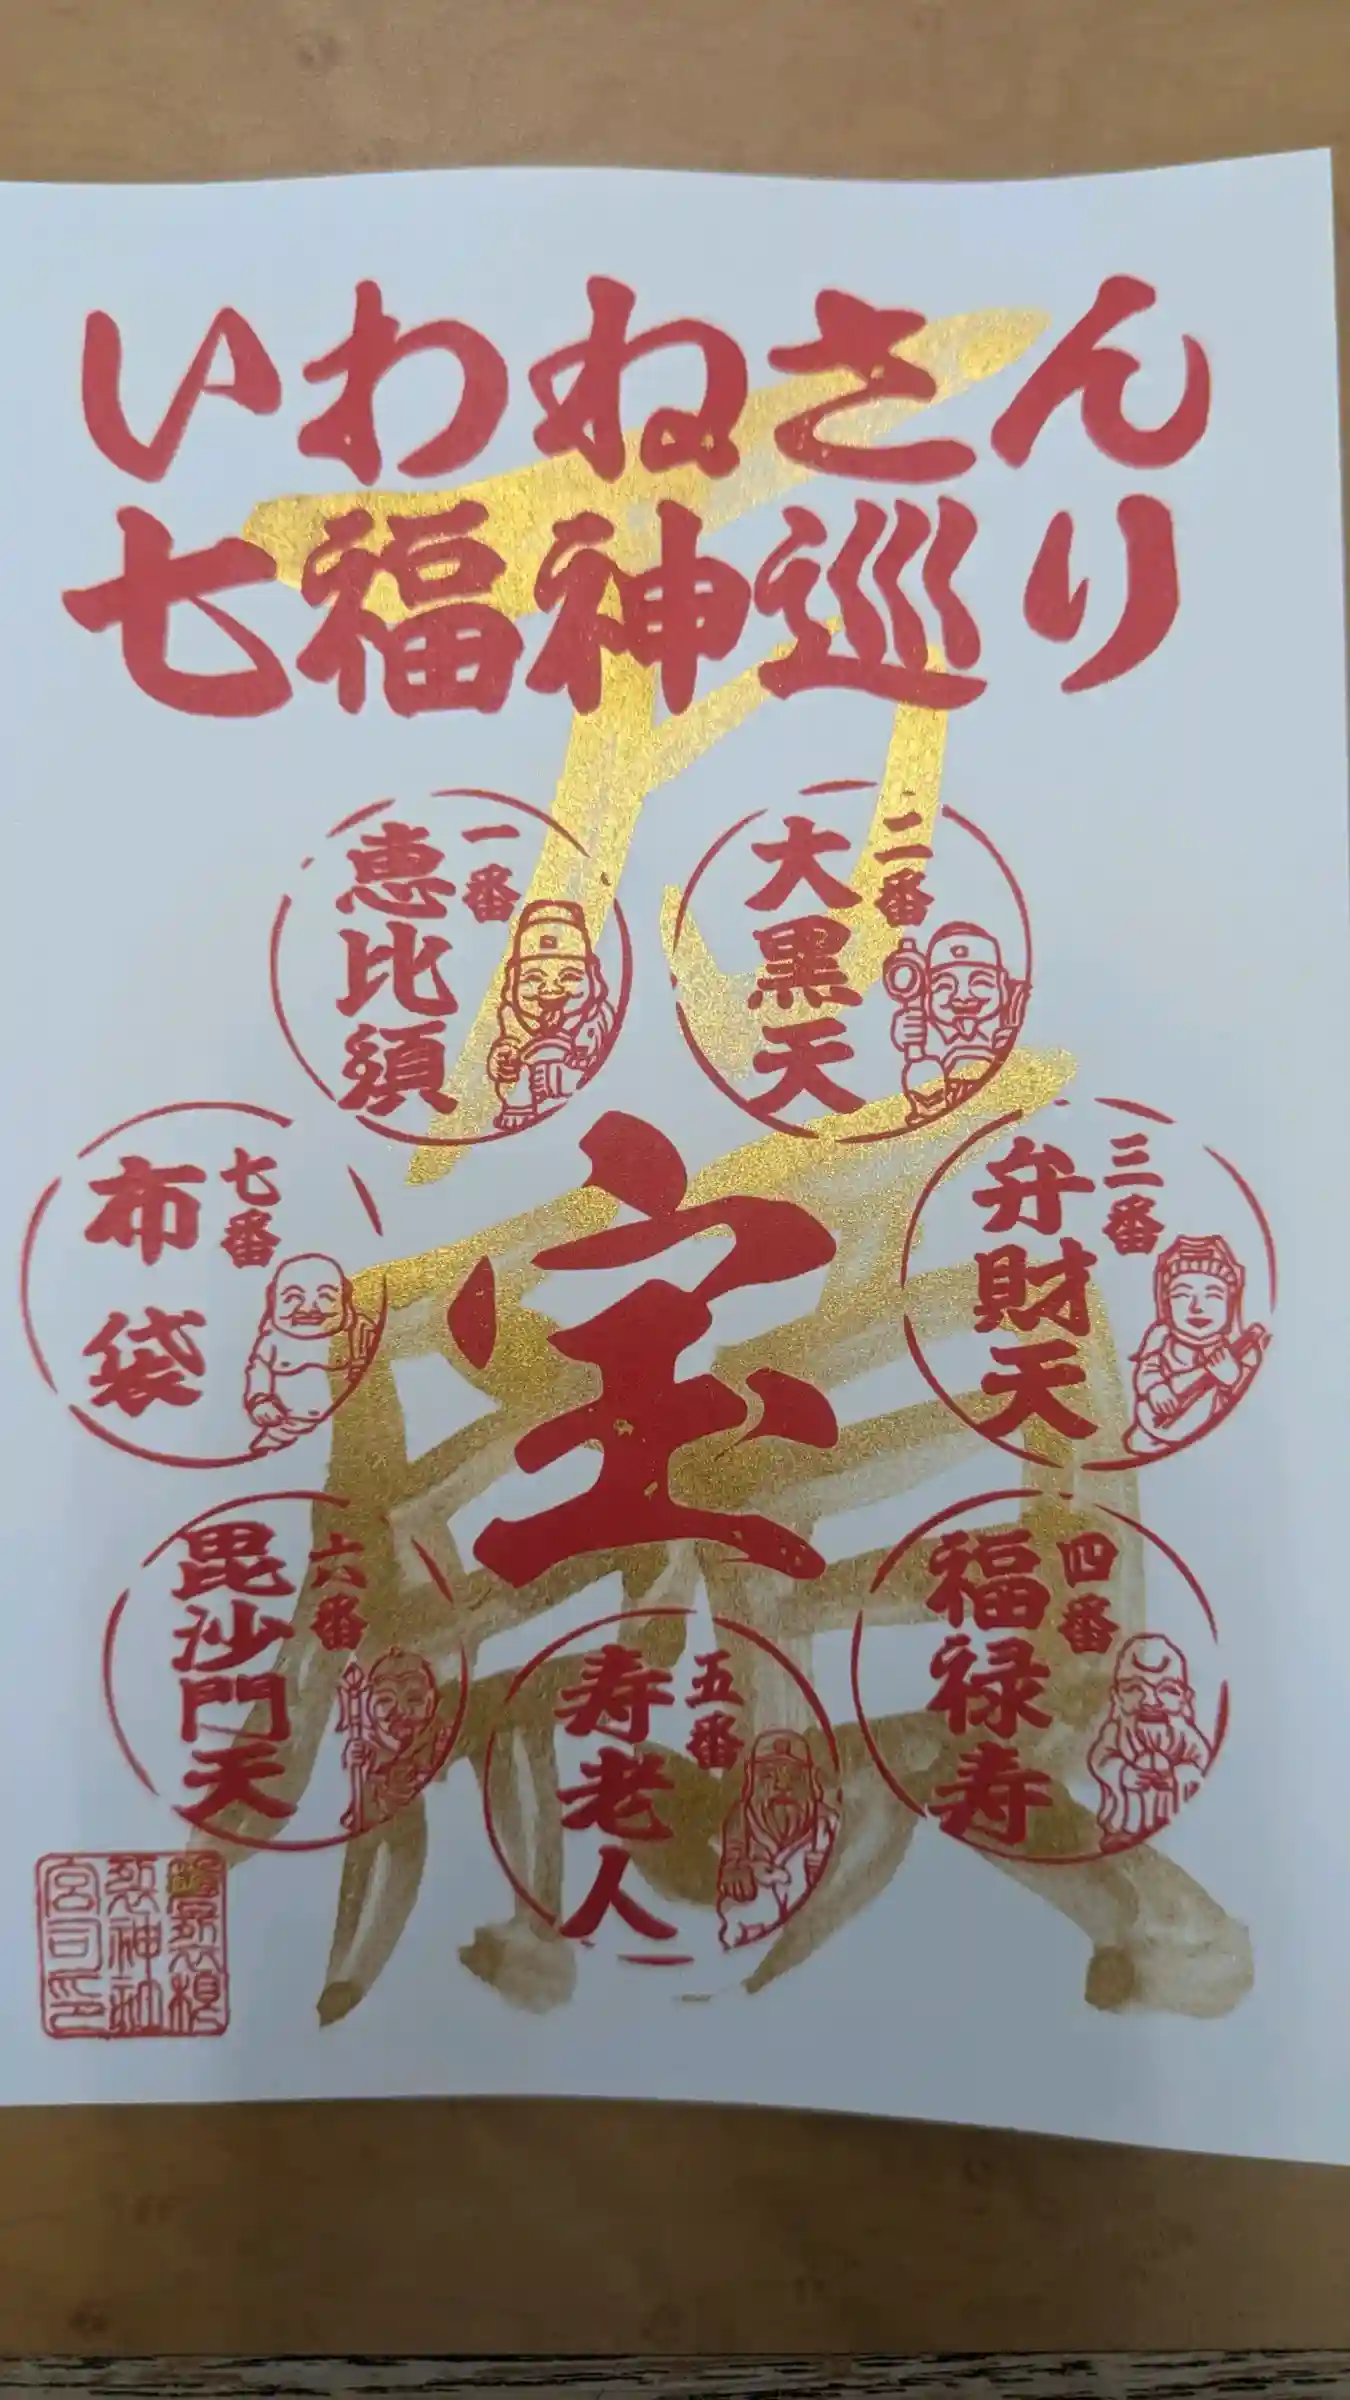 いわねさん
七福神巡り
一番
恵比須
二番
大黒天
三番
弁財天
四番
福禄寿
五番
寿老人
六番
毘沙門天
七番
布袋
宝
万願
磐裂根
裂神社
宮司印